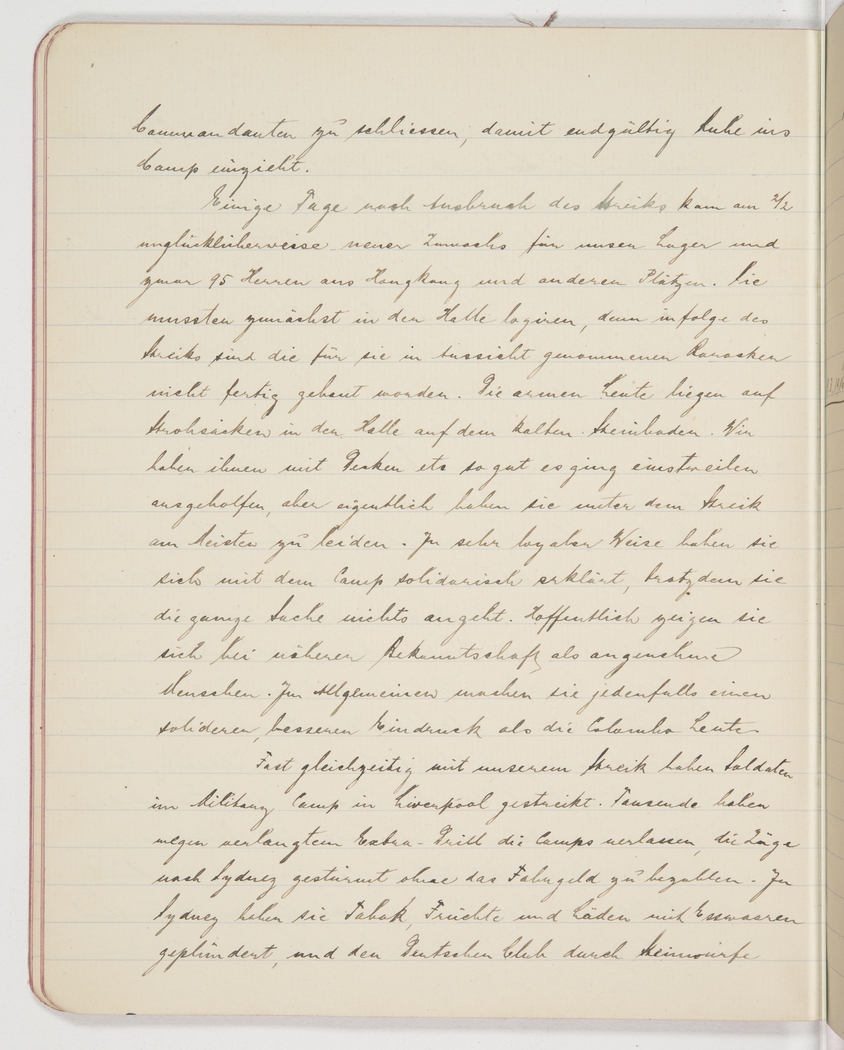 Commandanten zu schliessen, damit endgültig Ruhe ins
Camp einzieht.
Einige Tage nach Ausbruch des Streiks kam am 2/2
unglücklicherweise neuer Zuwachs für unser Lager und
zwar 95 Herren aus Hongkong und anderen Plätzen. Sie
mussten zunächst in der Halle logiren, denn infolge des
Streiks sind die für sie in Aussicht genommenen Baracken
nicht fertig gebaut worden. Die armen Leute liegen auf
Strohsäcken in der Halle auf dem kalten Steinboden. Wir
haben ihnen mit Decken etc so gut es ging einstweilen
ausgeholfen, aber eigentlich haben sie unter dem Streik
am Meisten zu leiden. In sehr loyaler Weise haben sie
sich mit dem Camp solidarisch erklärt, trotzdem sie
die ganze Sache nichts angeht. Hoffentlich zeigen sie
sich bei näherer Bekanntschaft als angenehme
Menschen. Im Allgemeinen machen sie jedenfalls einen
solideren, besseren Eindruck als die Colombo Leute.
Fast gleichzeitig mit unserem Streik haben Soldaten
im Military Camp in Liverpool gestreikt. Tausende haben
wegen verlangtem Extra-Drill die Camps verlassen, die Züge
nach Sydney gestürmt ohne das Fahrgeld zu bezahlen. In
Sydney haben sie Tabak, Früchte und Läden mit Esswaaren
geplündert, und den Deutschen Club durch Steinwürfe